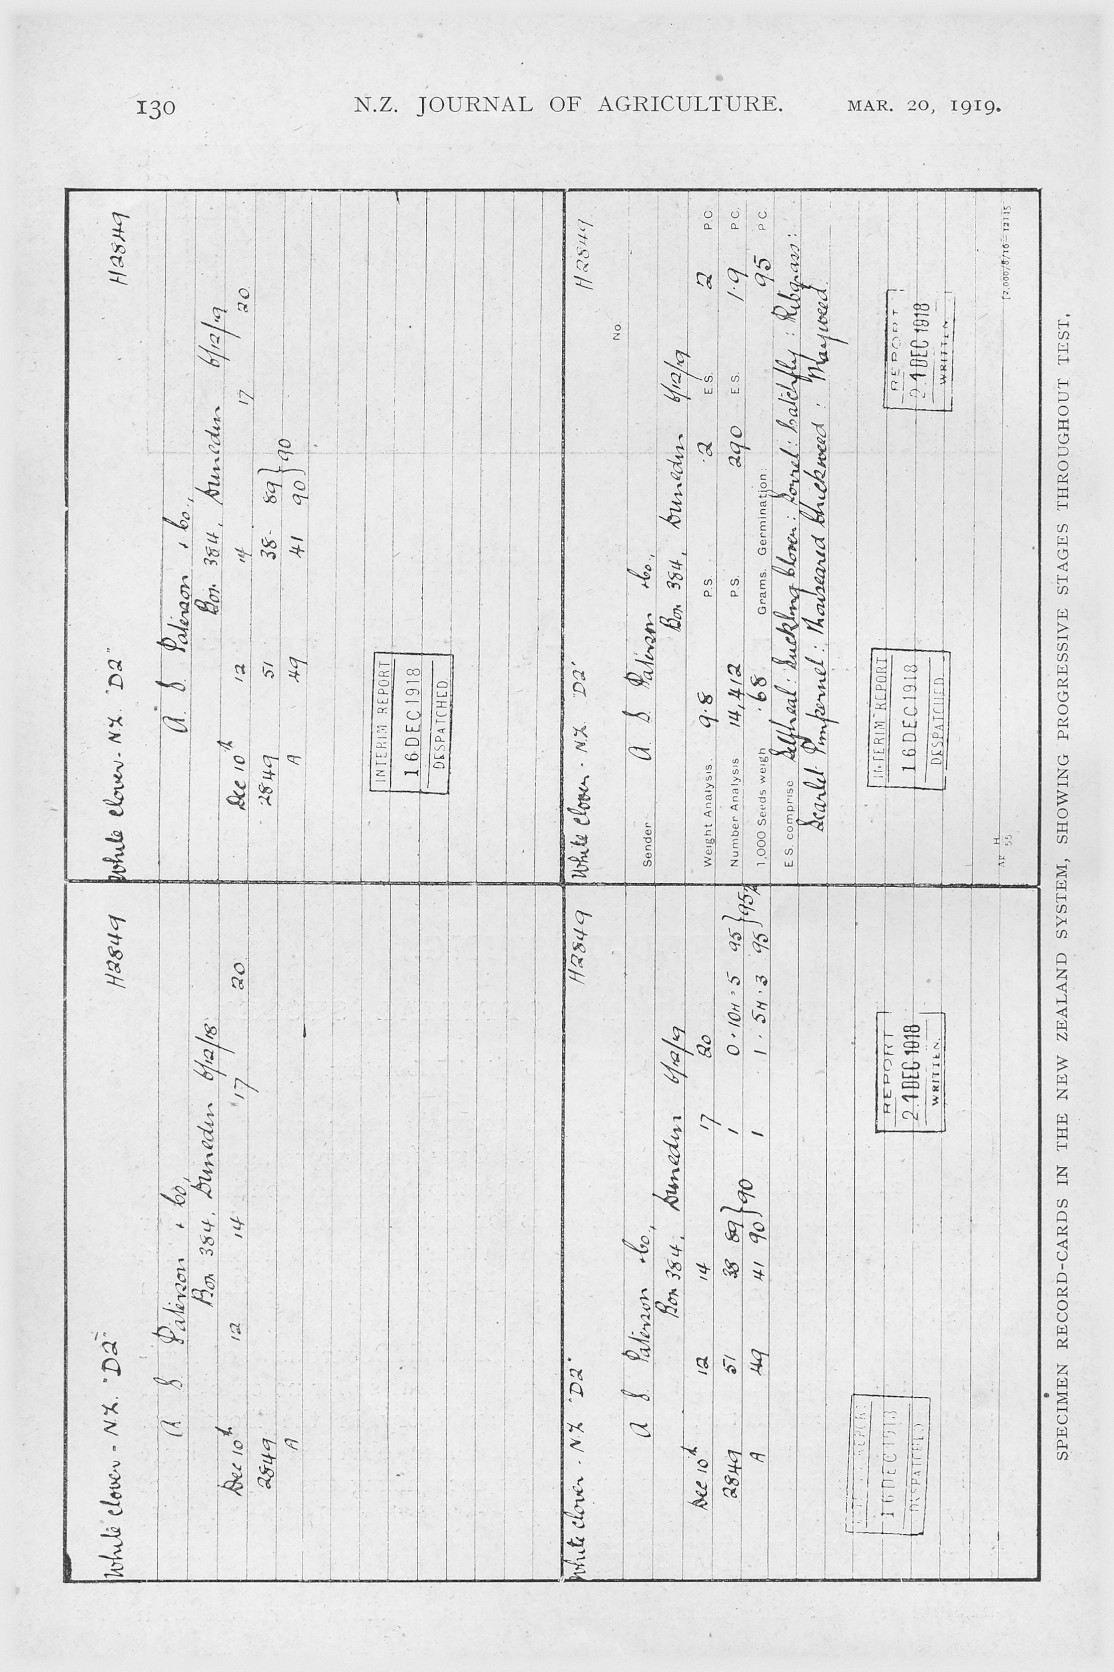 130
N.Z. JOURNAL OF AGRICULTURE.
MAR. 20, 1919.
White Clover - N.Z. "D2" H2849
A S Paterson & Co.,
Box 384, Dunedin 6/12/18
Dec 10th 12 14 17 20
2849
A
White Clover - N.Z. "D2" H2849
A. S. Paterson & Co.,
Box 384, Dunedin 6/12/9
Dec 10th 12 14 17 20
2849 51 38 89 } 90
A 49 41 90
INTERIM REPORT
16 DEC 1918
DESPATCHED.
White Clover - N.Z. "D2" H2849
A S Paterson & Co.,
Box 384, Dunedin 6/12/9
Dec 10th 12 14 17 20
2849 51 38 89 } 90 1 0 · 10H · 5 95 } 95%
A 49 41 90 1 1 · 5H · 3 95
16 DEC 1918
DESPATCHED
REPORT
21 DEC 1918
WRITTEN.
White Clover - N.Z. "D2" H2849
No.
Sender A. S Paterson & Co.,
Box 384, Dunedin 6/12/9
Weight Analysis. 9·8 P.S. ·2 E.S. 2 P.C.
Number Analysis 14,412 P.S. 290 E.S. 1·9 P.C.
1,000 Seeds weigh ·68 Grams. Germination: 95 P.C.
E.S. comprise Selfheal: Suckling Clover: Sorrel: Catchfly: Ribgrass:
Scarlet Pimpernel: Mouseeared Chickweed: Mayweed.
INTERIM REPORT
16 DEC 1918
DESPATCHED.
REPORT
21 DEC 1918
WRITTEN
H.
55
[2,000/8/16—12115
SPECIMEN RECORD-CARDS IN THE NEW ZEALAND SYSTEM, SHOWING PROGRESSIVE STAGES THROUGHOUT TEST.